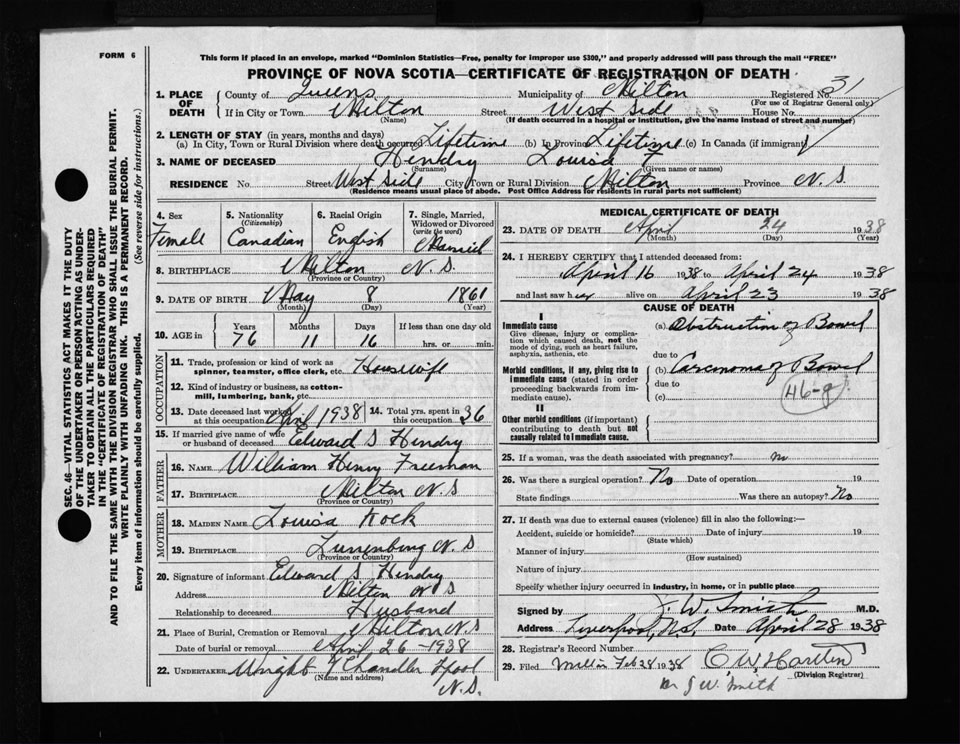 FORM 6
This form if placed in an envelope, marked "Dominion Statistics—Free, penalty for improper use $300," and properly addressed will pass through the mail "FREE"
PROVINCE OF NOVA SCOTIA—CERTIFICATE OF REGISTRATION OF DEATH
1. PLACE OF DEATH County of Queens Municipality of Milton Registered No. 31
(For use of Registrar General only)
If in City or Town Milton Street West Side House No.
(Name) (If death occurred in a hospital or institution, give the name instead of street and number)
2. LENGTH OF STAY (in years, months and days)
(a) In City, Town or Rural Division where death occurred Lifetime (b) In Province Lifetime (c) In Canada (if immigrant)
3. NAME OF DECEASED Hendry Louisa F
(Surname) (Given name or names)
RESIDENCE No. Street West Side City, Town or Rural Division Milton Province N.S
(Residence means usual place of abode. Post Office Address for residents in rural parts not sufficient)
4. Sex 5. Nationality (Citizenship) 6. Racial Origin 7. Single, Married, Widowed or Divorced (write the word)
Female Canadian English Married
8. BIRTHPLACE Milton N.S.
(Province or Country)
9. DATE OF BIRTH May 8 1861
(Month) (Day) (Year)
10. AGE in Years Months Days If less than one day old
76 11 16 hrs. or min.
OCCUPATION
11. Trade, profession or kind of work as spinner, teamster, office clerk, etc. Housewife
12. Kind of industry or business, as cotton-mill, lumbering, bank, etc.
13. Date deceased last worked at this occupation April 1938 14. Total yrs. spent in this occupation 36
15. If married give name of wife or husband of deceased Edward S Hendry
FATHER
16. NAME William Henry Freeman
17. BIRTHPLACE Milton N.S
(Province or Country)
MOTHER
18. MAIDEN NAME Louisa
19. BIRTHPLACE Lunenburg N.S
(Province or Country)
20. Signature of informant Edward S Hendry
Address Milton N S
Relationship to deceased Husband
21. Place of Burial, Cremation or Removal Milton N.S
Date of burial or removal April 26-1938
22. UNDERTAKER Wright & Chandler Lpool
(Name and address) N.S.
MEDICAL CERTIFICATE OF DEATH
23. DATE OF DEATH April 24 1938
(Month) (Day) (Year)
24. I HEREBY CERTIFY that I attended deceased from:
April 16 1938 to April 24 1938
and last saw her alive on April 23 1938
CAUSE OF DEATH
I
Immediate cause (a) Obstruction of Bowel
Give disease, injury or complication which caused death, not the mode of dying, such as heart failure, asphyxia, asthenia, etc
due to
Morbid conditions, if any, giving rise to immediate cause (stated in order proceeding backwards from immediate cause).
(b) Carcinoma of Bowel
due to
(c) 46-g
II
Other morbid conditions (if important) contributing to death but not causally related to immediate cause.
25. If a woman, was the death associated with pregnancy? no
26. Was there a surgical operation? No Date of operation 19
State findings Was there an autopsy? No
27. If death was due to external causes (violence) fill in also the following:—
Accident, suicide or homicide? Date of injury 19
(State which)
Manner of injury
(How sustained)
Nature of injury
Specify whether injury occurred in industry, in home, or in public place
Signed by J. W. Smith M.D.
Address Liverpool, N.S. Date April 28 1938
28. Registrar's Record Number
29. Filed 1938
(Division Registrar)
Dr J W. Smith
SEC. 46—VITAL STATISTICS ACT MAKES IT THE DUTY
OF THE UNDERTAKER OR PERSON ACTING AS UNDER-
TAKER TO OBTAIN ALL THE PARTICULARS REQUIRED
IN THE "CERTIFICATE OF REGISTRATION OF DEATH"
AND TO FILE THE SAME WITH THE DIVISION REGISTRAR WHO SHALL ISSUE THE BURIAL PERMIT.
WRITE PLAINLY WITH UNFADING INK. THIS IS A PERMANENT RECORD.
Every item of information should be carefully supplied. (See reverse side for instructions.)